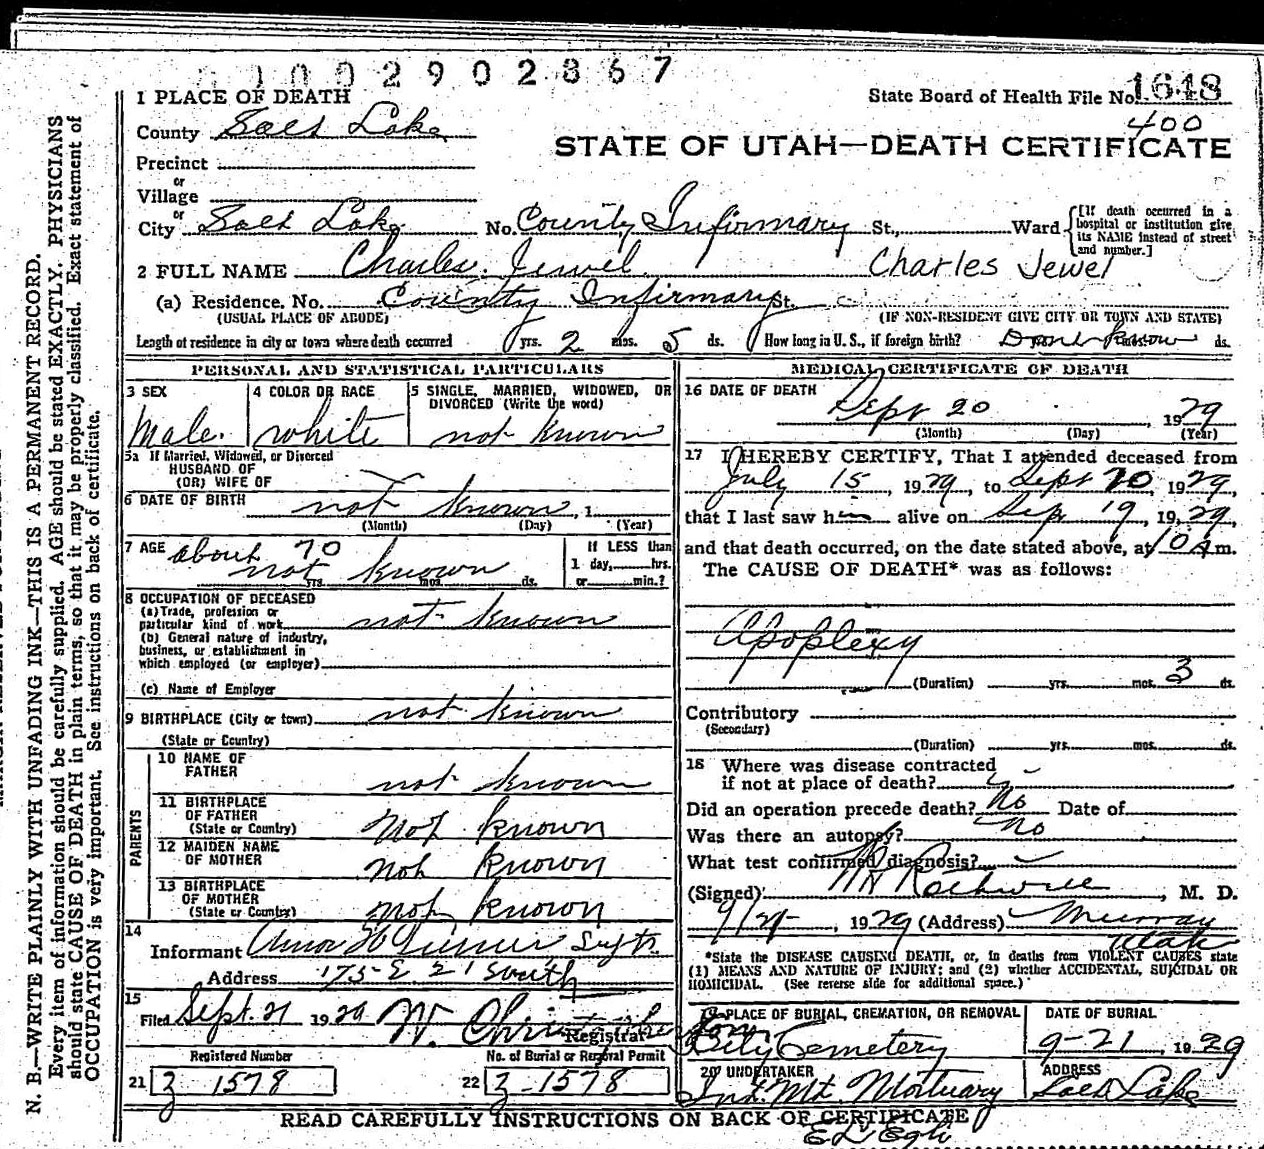 1002902367
1 PLACE OF DEATH
State Board of Health File No. 1648
400
County Salt Lake
STATE OF UTAH—DEATH CERTIFICATE
Precinct
or
Village
or
City Salt Lake No. County Infirmary St., Ward [If death occurred in a hospital or institution give its NAME instead of street and number.]
2 FULL NAME Charles Jewel Charles Jewel
(a) Residence, No. County Infirmary St.
(USUAL PLACE OF ABODE) (IF NON-RESIDENT GIVE CITY OR TOWN AND STATE)
Length of residence in city or town where death occurred yrs. 2 mos. 5 ds. How long in U. S., if foreign birth? Dont know ds.
PERSONAL AND STATISTICAL PARTICULARS
3 SEX 4 COLOR OR RACE 5 SINGLE, MARRIED, WIDOWED, OR
DIVORCED (Write the word)
Male. white not known
5a If Married, Widowed, or Divorced
HUSBAND OF
(OR) WIFE OF
6 DATE OF BIRTH not known, 1
(Month) (Day) (Year)
7 AGE about 70 If LESS than
not known 1 day, hrs.
yrs. mos. ds. or min.?
8 OCCUPATION OF DECEASED
(a) Trade, profession or
particular kind of work not known
(b) General nature of industry,
business, or establishment in
which employed (or employer)
(c) Name of Employer
9 BIRTHPLACE (City or town) not known
(State or Country)
PARENTS
10 NAME OF
FATHER not known
11 BIRTHPLACE
OF FATHER
(State or Country) Not known
12 MAIDEN NAME
OF MOTHER Not known
13 BIRTHPLACE
OF MOTHER
(State or Country) Not known
14
Informant Supt.
Address 175 E 21 South
15
Filed Sept. 21 1929 W. Christopherson
Registrar
Registered Number No. of Burial or Removal Permit
21 Z 1578 22 Z-1578
MEDICAL CERTIFICATE OF DEATH
16 DATE OF DEATH
Sept 20, 1929
(Month) (Day) (Year)
17 I HEREBY CERTIFY, That I attended deceased from
July 15, 1929, to Sept 20, 1929,
that I last saw him alive on Sep 19, 1929,
and that death occurred, on the date stated above, at 10 A m.
The CAUSE OF DEATH* was as follows:
Apoplexy
(Duration) yrs. mos. 3 ds.
Contributory
(Secondary)
(Duration) yrs. mos. ds.
18 Where was disease contracted
if not at place of death?
Did an operation precede death? No Date of
Was there an autopsy? No
What test confirmed diagnosis?
(Signed) Rothwell, M. D.
9/21, 1929 (Address) Murray
Utah
*State the DISEASE CAUSING DEATH, or, in deaths from VIOLENT CAUSES state
(1) MEANS AND NATURE OF INJURY; and (2) whether ACCIDENTAL, SUICIDAL OR
HOMICIDAL. (See reverse side for additional space.)
19 PLACE OF BURIAL, CREMATION, OR REMOVAL DATE OF BURIAL
City Cemetery 9-21, 1929
20 UNDERTAKER ADDRESS
Mt. Mortuary Salt Lake
READ CAREFULLY INSTRUCTIONS ON BACK OF CERTIFICATE
N. B.—WRITE PLAINLY WITH UNFADING INK—THIS IS A PERMANENT RECORD.
Every item of information should be carefully supplied. AGE should be stated EXACTLY. PHYSICIANS
should state CAUSE OF DEATH in plain terms, so that it may be properly classified. Exact statement of
OCCUPATION is very important. See instructions on back of certificate.